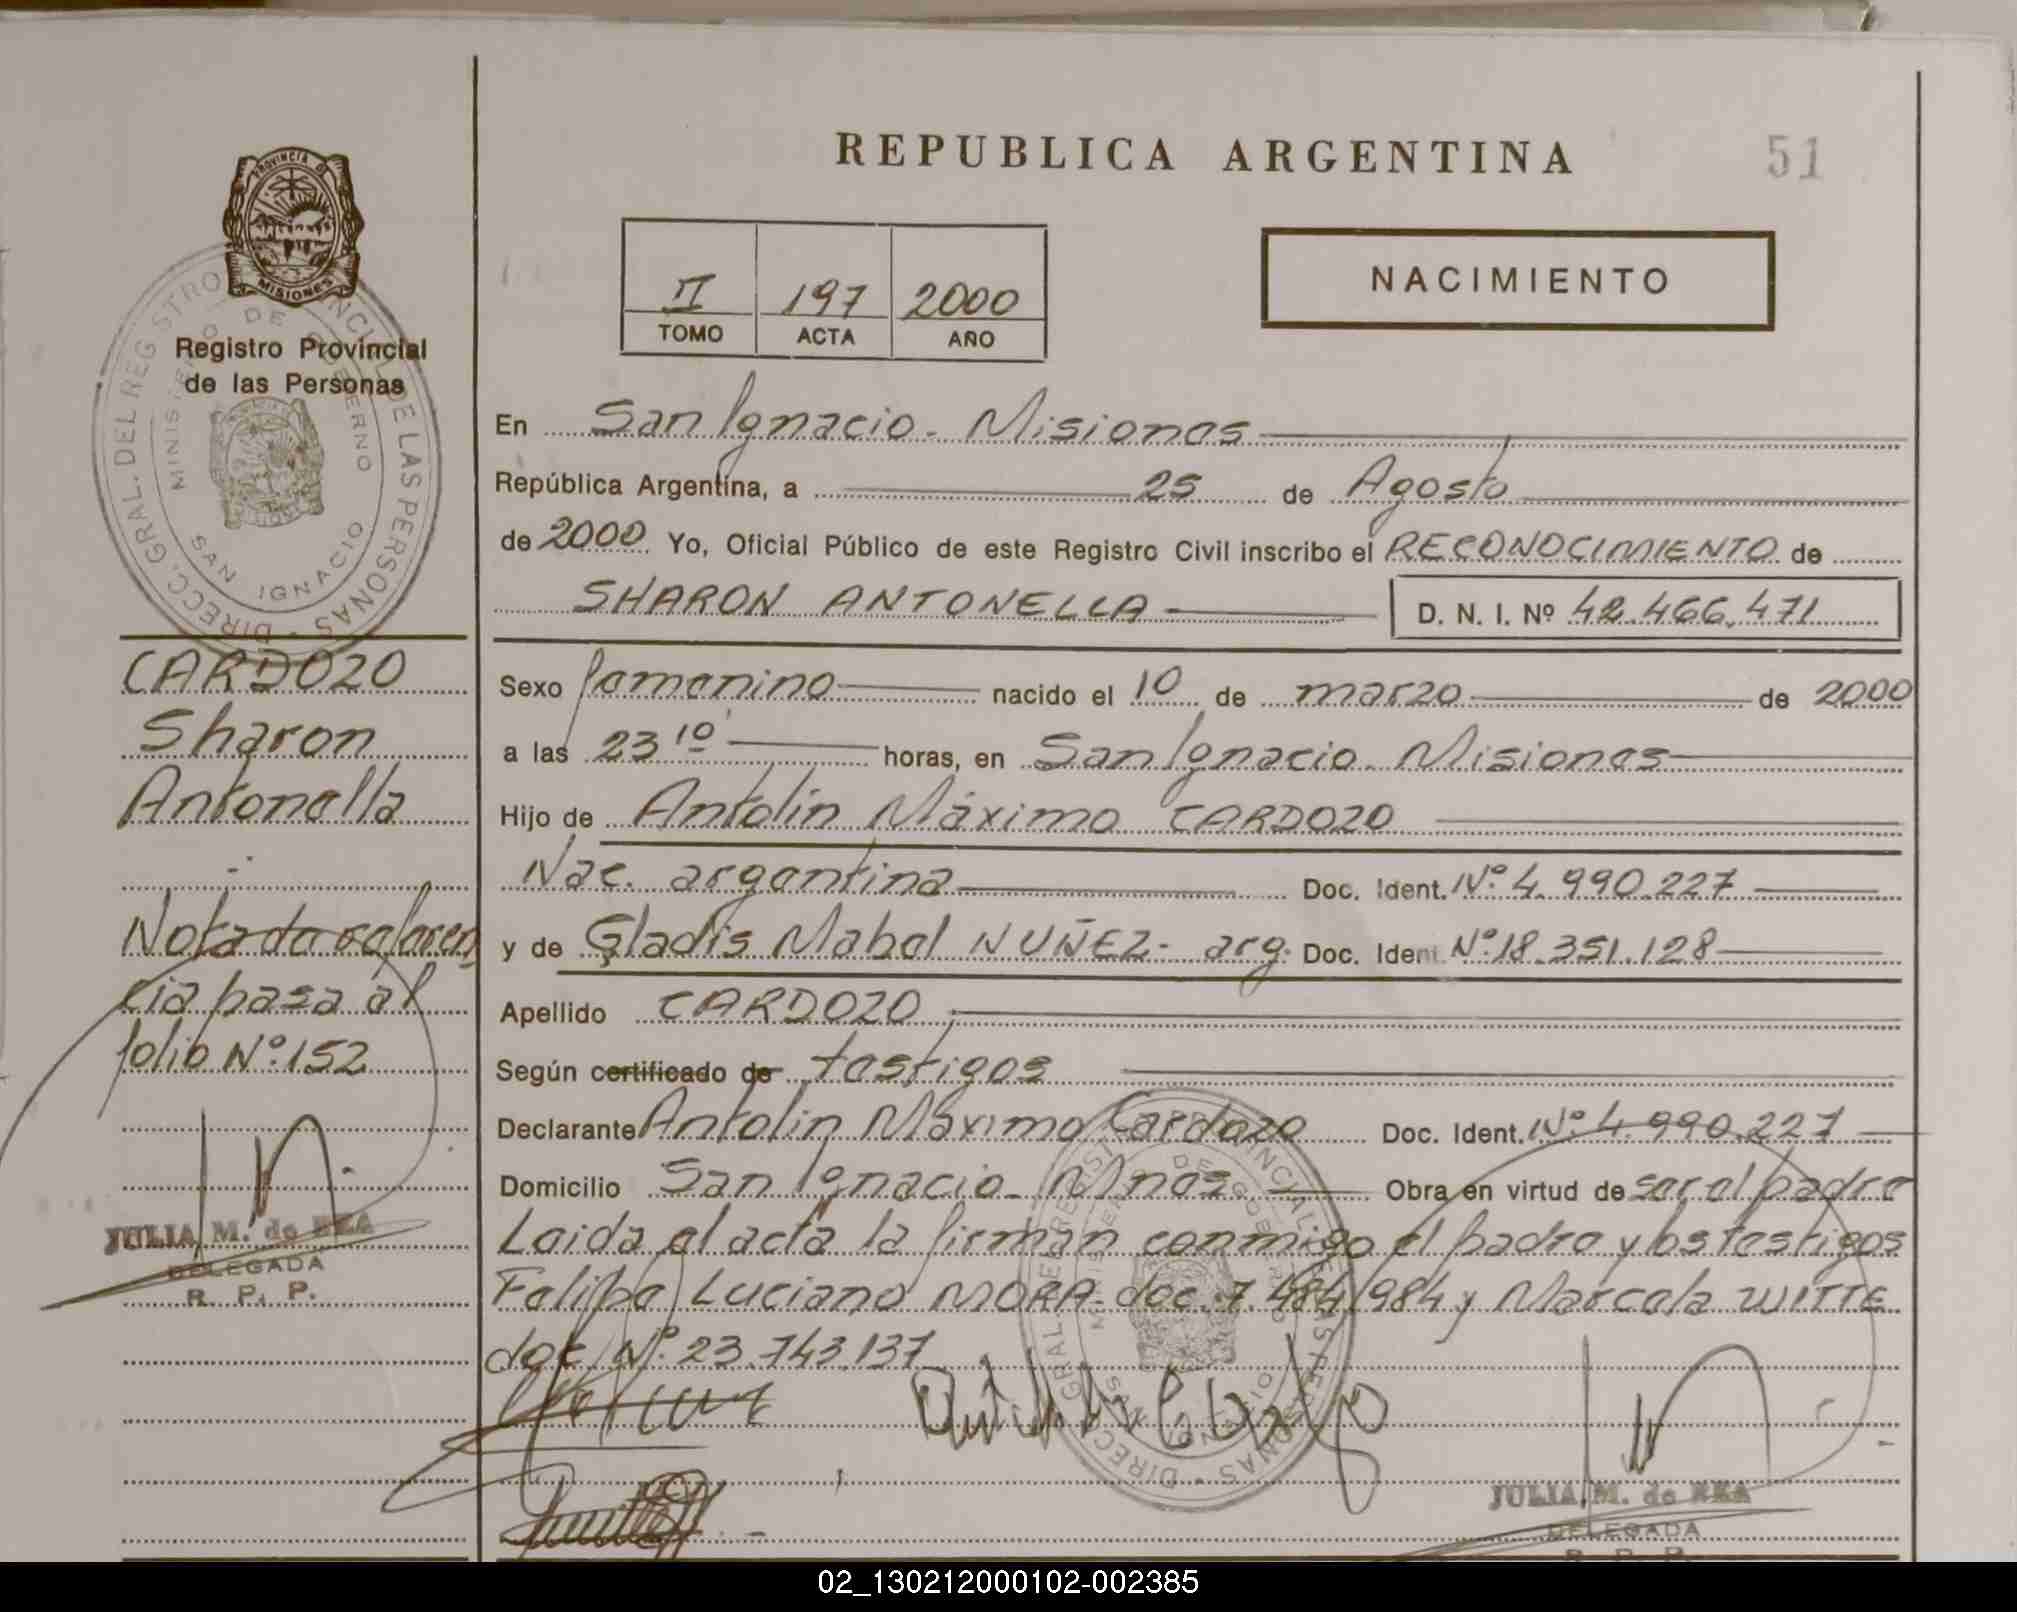 REPUBLICA ARGENTINA
51
PROVINCIA D
MISIONES
Registro Provincial
de las Personas
DIRECC. GRAL. DEL REGISTRO PROVINCIAL DE LAS PERSONAS
MINISTERIO DE GOBIERNO
SAN IGNACIO
II 197 2000
TOMO ACTA AÑO
NACIMIENTO
En San Ignacio - Misiones
República Argentina, a 25 de Agosto
de 2000 Yo, Oficial Público de este Registro Civil inscribo el RECONOCIMIENTO de
SHARON ANTONELLA D. N. I. Nº 42.466.471
CARDOZO
Sharon
Antonella
Nota de referen
cia pasa al
folio Nº 152
JULIA M. de REA
DELEGADA
R. P. P.
Sexo femenino nacido el 10 de marzo de 2000
a las 23 10 horas, en San Ignacio - Misiones
Hijo de Antolín Máximo CARDOZO
Nac. argentina Doc. Ident. Nº 4.990.227
y de Gladis Mabel NUÑEZ - arg. Doc. Ident. Nº 18.351.128
Apellido CARDOZO
Según certificado de testigos
Declarante Antolin Máximo Cardozo Doc. Ident. Nº 4.990.227
Domicilio San Ignacio - Mnes Obra en virtud de ser el padre
Leida el acta la firman conmigo el padre y los testigos
Felipe Luciano MORA - doc. 7.484.984 y Marcela WITTE
doc. Nº 23.743.137
DIRECC. GRAL. DEL REGISTRO PROVINCIAL DE LAS PERSONAS
MINISTERIO DE GOBIERNO
SAN IGNACIO
JULIA M. de REA
DELEGADA
R. P. P.
02_130212000102-002385